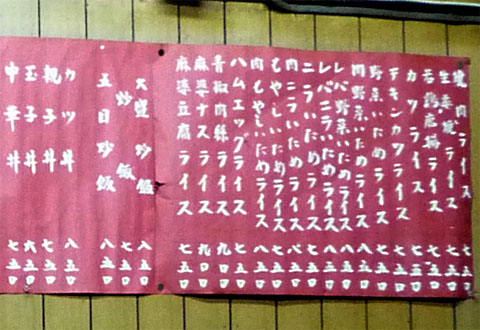 生姜焼ライス 七五〇
若鶏唐揚ライス 七五〇
カツライス 七五〇
チキンカツライス 七五〇
野菜いためライス 七五〇
肉野菜いためライス 八五〇
レバ野菜いためライス 八五〇
レバニラいためライス 八五〇
ニラいためライス 七五〇
肉ニラいためライス 八五〇
もやしいためライス 七五〇
肉もやしいためライス 八五〇
ハムエッグライス 七五〇
青椒肉絲ライス 九五〇
麻婆ナスライス 九〇〇
麻婆豆腐ライス 七五〇
大盛炒飯 八五〇
炒飯 七五〇
五目炒飯 八五〇
カツ丼 八五〇
親子丼 七五〇
玉子丼 六五〇
中華丼 七五〇